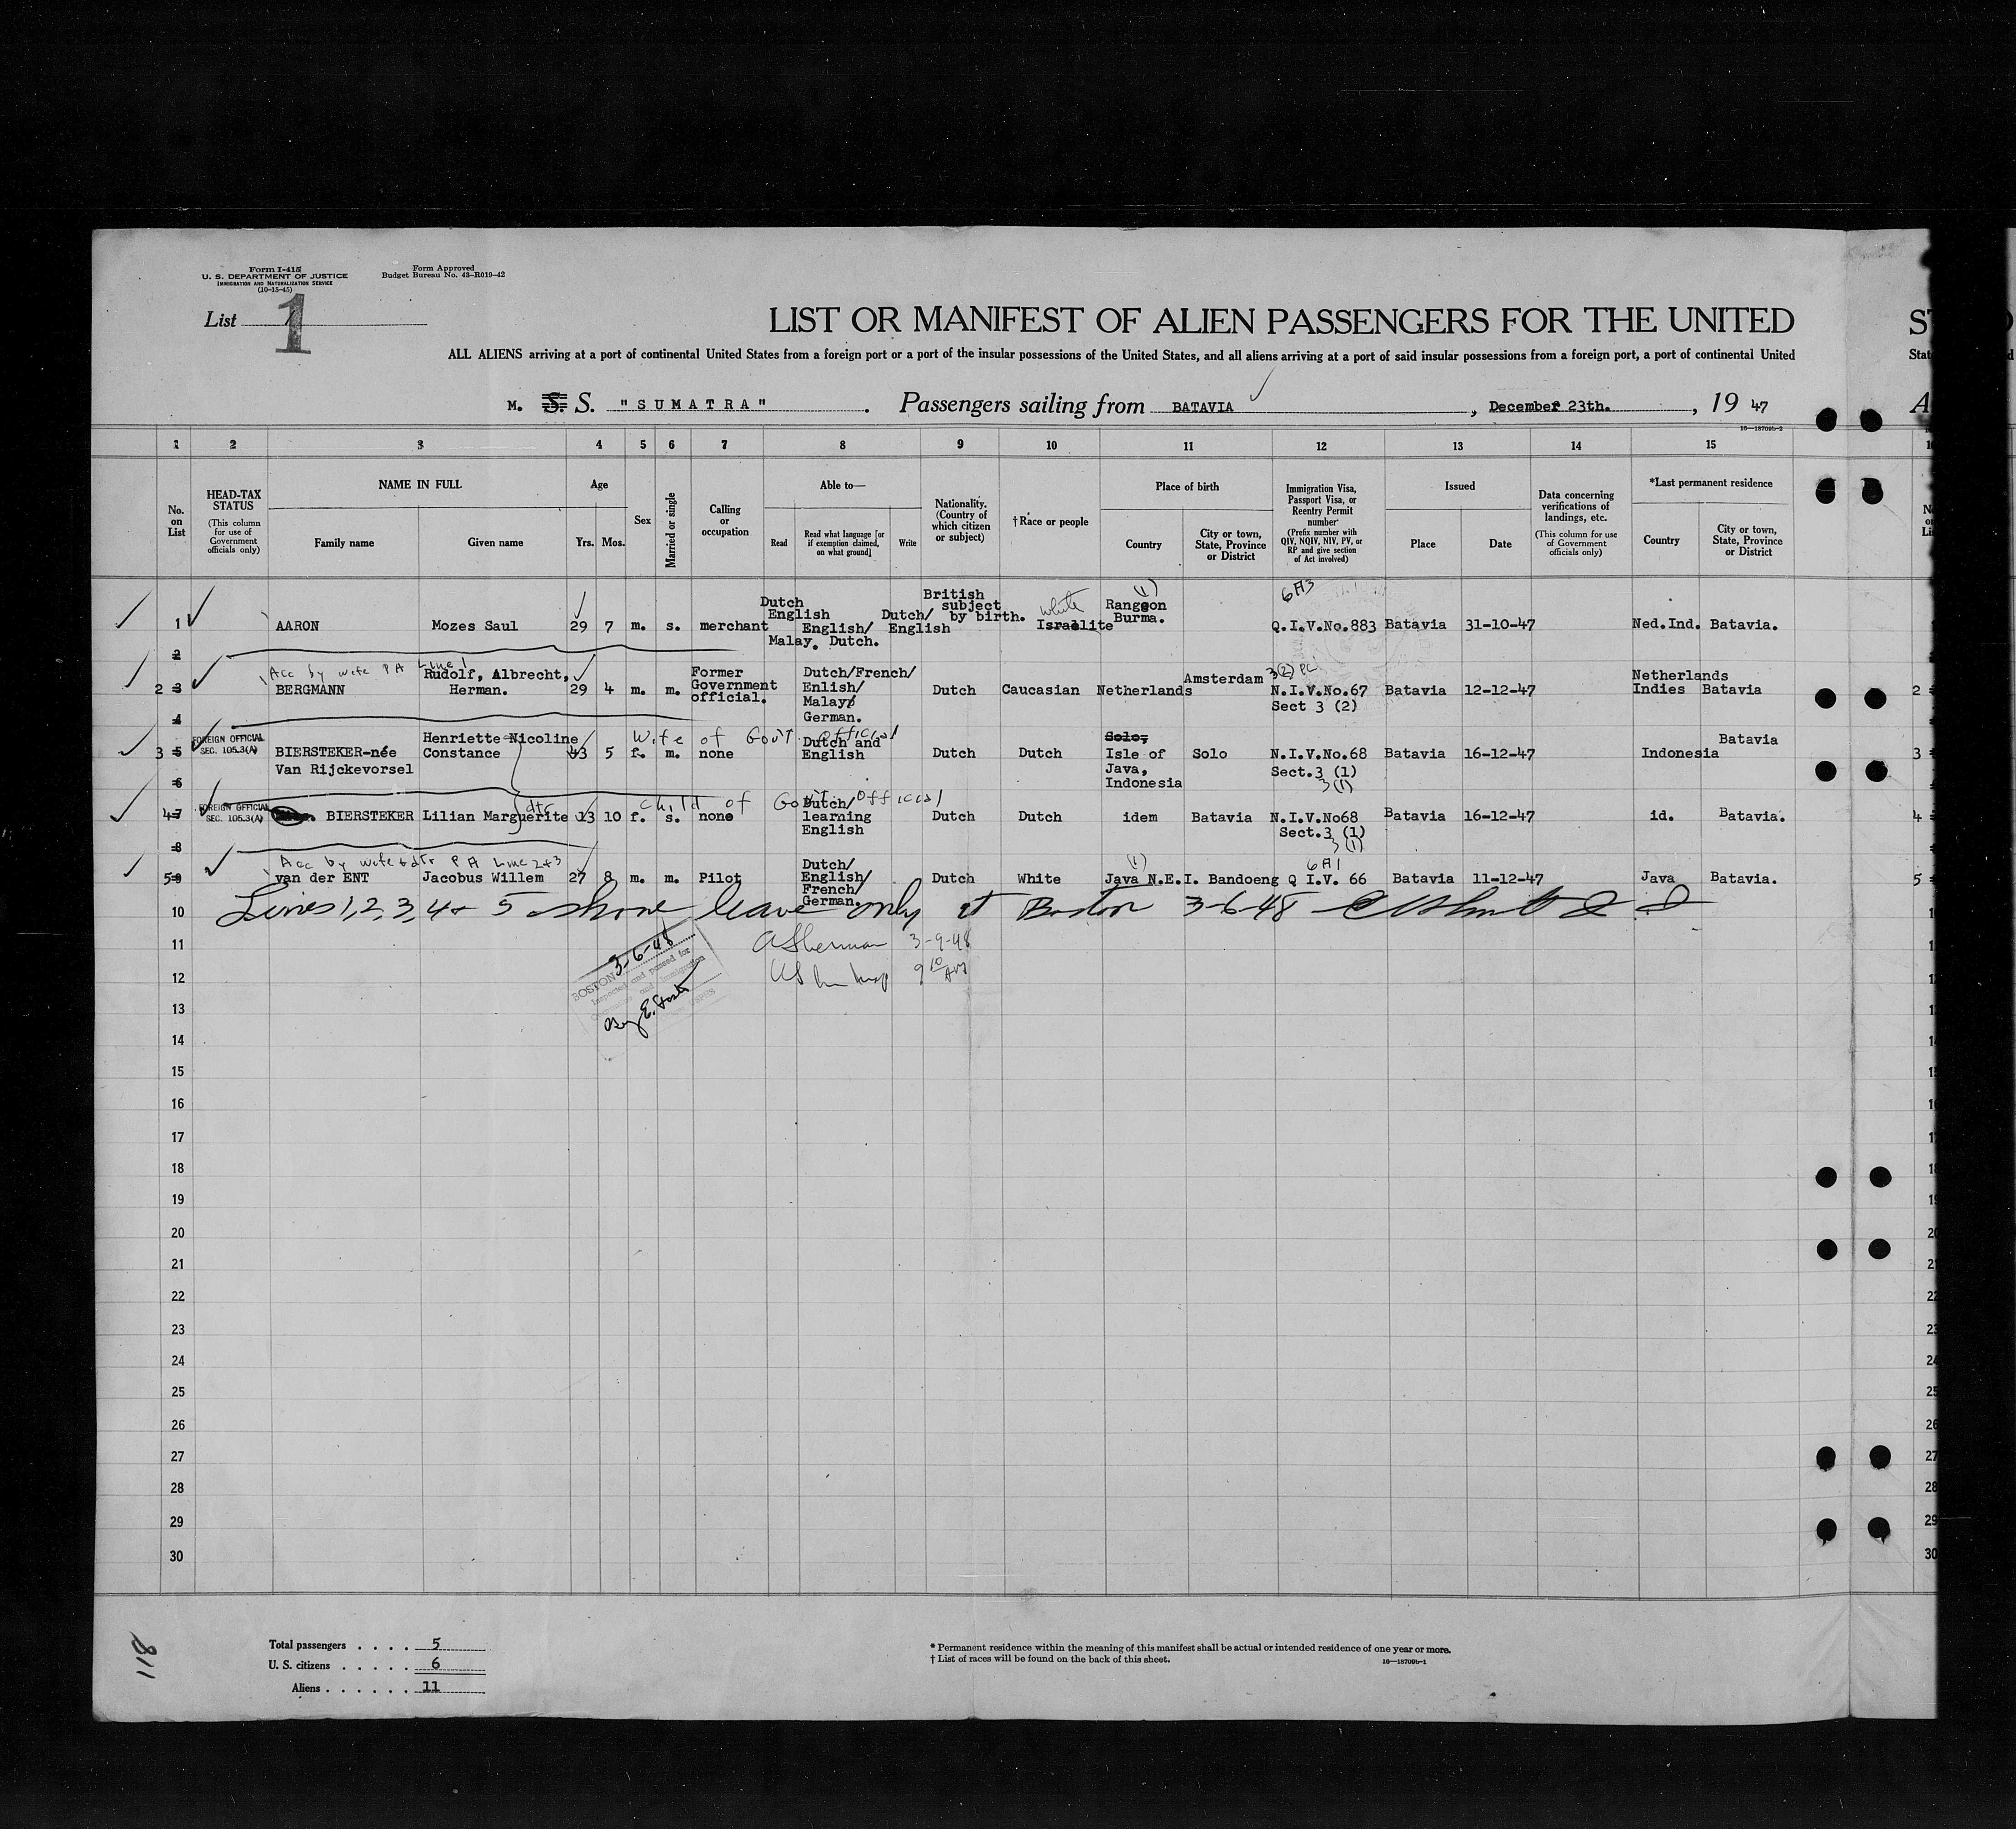 Form I-415
U. S. DEPARTMENT OF JUSTICE
IMMIGRATION AND NATURALIZATION SERVICE
(10-15-45)
Form Approved
Budget Bureau No. 43-R019-42
List 1
1
LIST OR MANIFEST OF ALIEN PASSENGERS FOR THE UNITED
ALL ALIENS arriving at a port of continental United States from a foreign port or a port of the insular possessions of the United States, and all aliens arriving at a port of said insular possessions from a foreign port, a port of continental United
M. S. S. "SUMATRA". Passengers sailing from BATAVIA, December 23th., 19 47
16—18709b-2
1 2 3 4 5 6 7 8 9 10 11 12 13 14 15
No. on List
HEAD-TAX STATUS
(This column for use of Government officials only)
NAME IN FULL
Family name
Given name
Age
Yrs. Mos.
Sex
Married or single
Calling or occupation
Able to—
Read
Read what language [or if exemption claimed, on what ground]
Write
Nationality. (Country of which citizen or subject)
† Race or people
Place of birth
Country
City or town, State, Province or District
Immigration Visa, Passport Visa, or Reentry Permit number
(Prefix number with QIV, NQIV, NIV, PV, or RP and give section of Act involved)
Issued
Place
Date
Data concerning verifications of landings, etc.
(This column for use of Government officials only)
*Last permanent residence
Country
City or town, State, Province or District
1 AARON Mozes Saul 29 7 m. s. merchant Dutch English English/ Malay. Dutch. Dutch/ English British subject by birth. white Israelite (1) Rangoon Burma. 6A3 Q.I.V.No.883 Batavia 31-10-47 Ned.Ind. Batavia.
2
Acc by wife PA Line 1
2 3 BERGMANN Rudolf, Albrecht, Herman. 29 4 m. m. Former Government official. Dutch/French/ Enlish/ Malay German. Dutch Caucasian Netherlands Amsterdam 3(2) N.I.V.No.67 Sect 3 (2) Batavia 12-12-47 Netherlands Indies Batavia
4
FOREIGN OFFICIAL SEC. 105.3(A)
Wife of Govt. official
3 5 BIERSTEKER-née Van Rijckevorsel Henriette Nicoline Constance 43 5 f. m. none Dutch and English Dutch Dutch Solo, Isle of Java, Indonesia Solo N.I.V.No.68 Sect.3 (1) 3(1) Batavia 16-12-47 Indonesia Batavia
6
FOREIGN OFFICIAL SEC. 105.3(A)
dtr
child of Govt official
4 7 BIERSTEKER Lilian Marguerite 13 10 f. s. none Dutch/ learning English Dutch Dutch idem Batavia N.I.V.No68 Sect.3 (1) 3(1) Batavia 16-12-47 id. Batavia.
8
Acc by wife & dtr PA Line 2+3
5 9 van der ENT Jacobus Willem 27 8 m. m. Pilot Dutch/ English/ French/ German. Dutch White (1) Java N.E.I. Bandoeng 6A1 Q I.V. 66 Batavia 11-12-47 Java Batavia.
10 Lines 1, 2, 3, 4 & 5 shore leave only at Boston 3-6-48
11 ASherman 3-9-48
12 9 10 AM
BOSTON 3-6-48
Inspected and passed for
13
14
15
16
17
18
19
20
21
22
23
24
25
26
27
28
29
30
Total passengers . . . . 5
U. S. citizens . . . . . 6
Aliens . . . . . . 11
* Permanent residence within the meaning of this manifest shall be actual or intended residence of one year or more.
† List of races will be found on the back of this sheet.
16—18709b-1
811